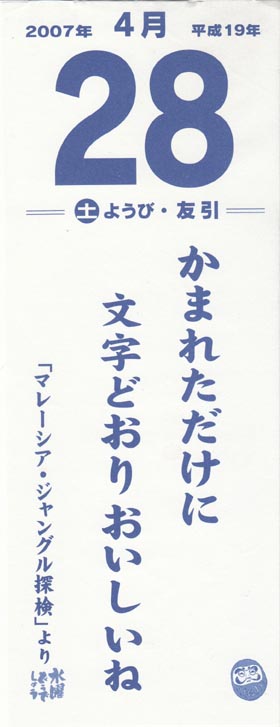 2007年 4月 平成19年
28
土ようび・友引
かまれただけに
文字どおりおいしいね
「マレーシア・ジャングル探検」より
水曜どうでしょう